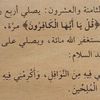 الثامنة والعشرون: يصلي أربع
﴿قُلْ يَا أَيُّهَا الْكَافِرُونَ﴾ مرّة،
يستغفر الله مائة، ويصلي على
السلام:
فيه مِنَ النَّوافِلِ، وَأَكْرِمْني فيهِ
المُلِحّينَ